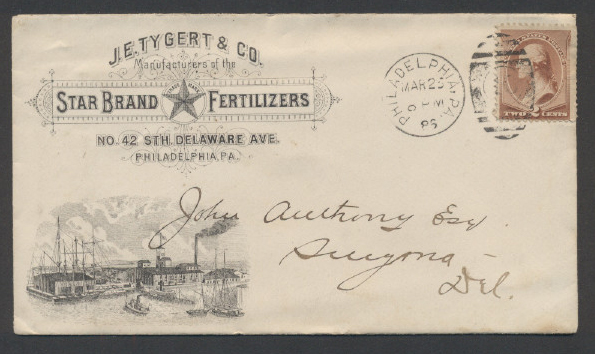 J.E. TYGERT & CO.
Manufacturers of the
STAR BRAND FERTILIZERS
NO. 42 STH. DELAWARE AVE.
PHILADELPHIA, PA.
PHILADELPHIA, PA.
MAR 23
6 PM
TWO 2 CENTS
John Anthony Esq.
Del.